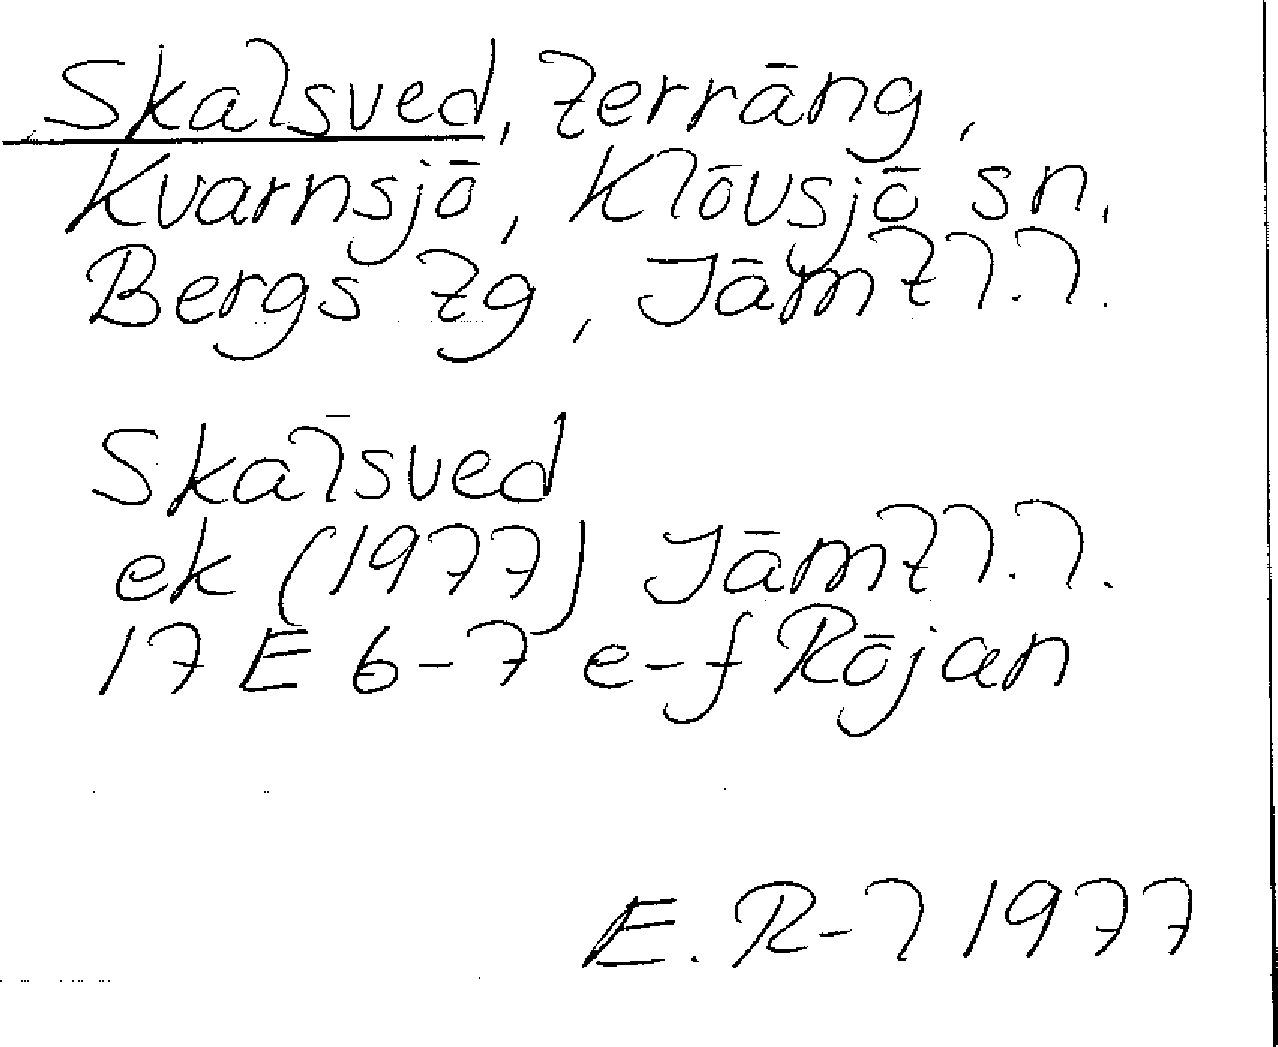 Skalsved, terräng,
Kvarnsjö, Klövsjö sn,
Bergs tg, Jämtl.l.
Skal̄sved
ek (1977) Jämtl.l.
17 E 6-7 e-f Röjan
E. R-l 1977